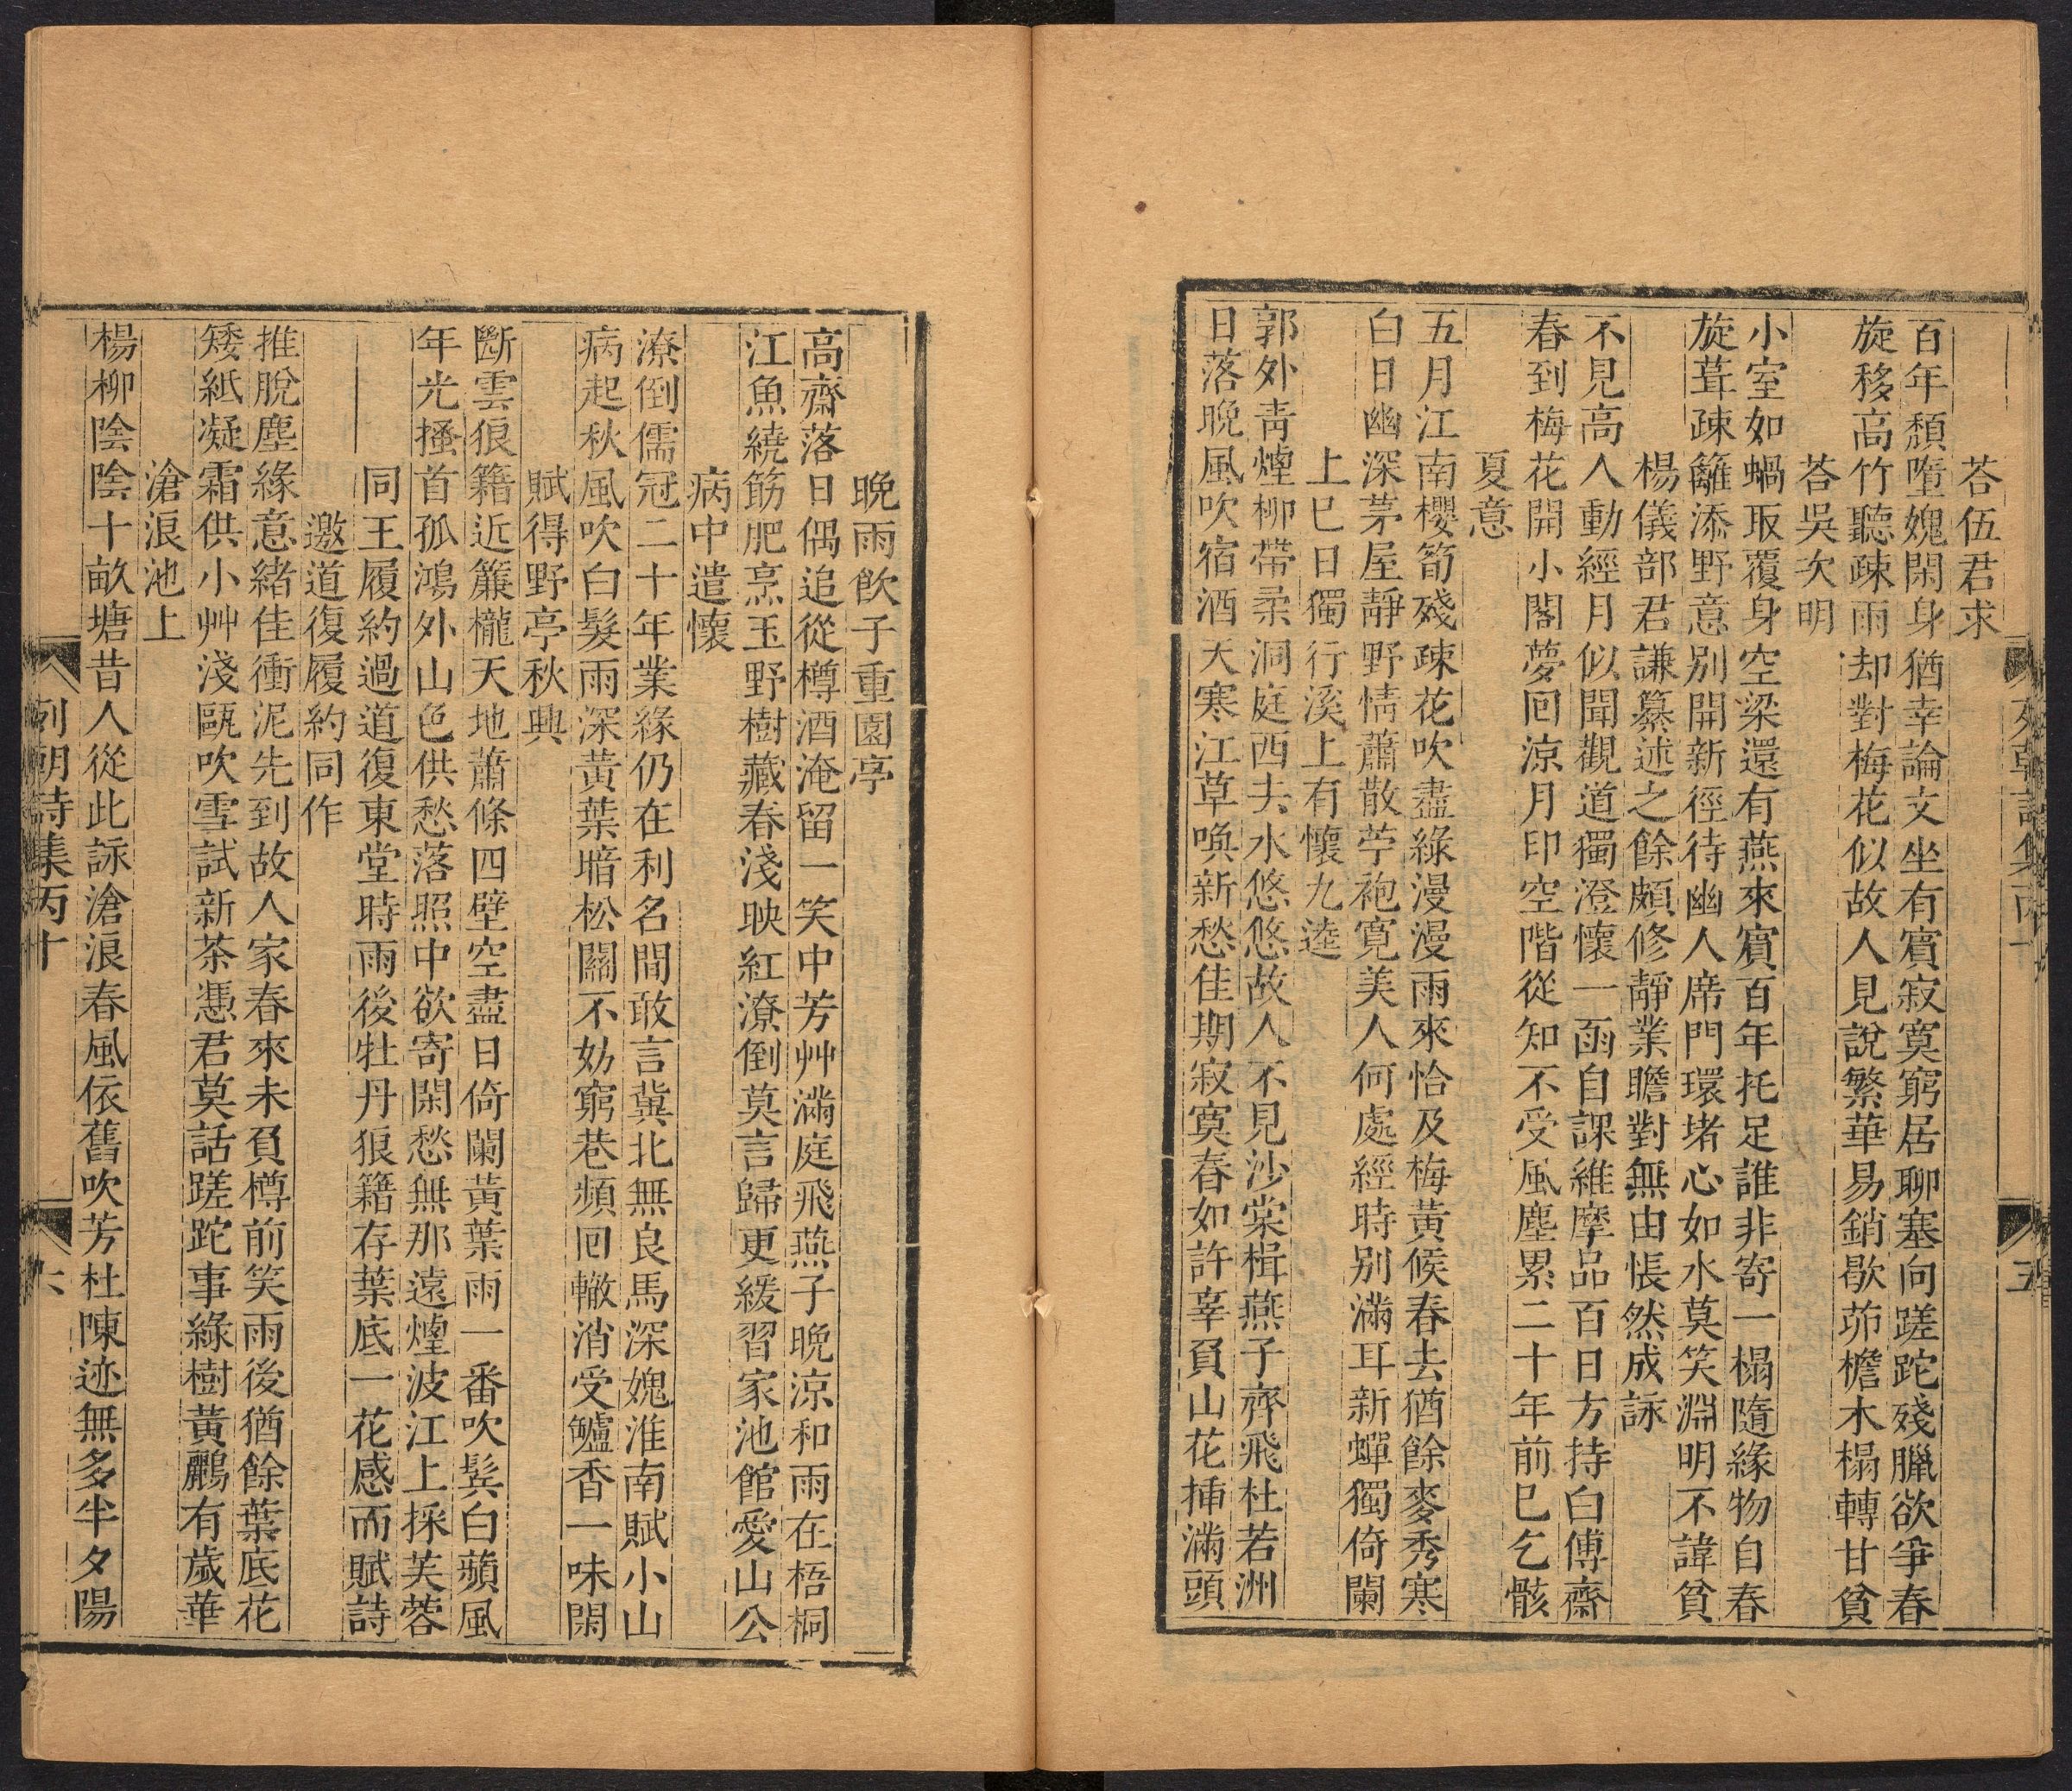 荅伍君求
百年頹墮媿閑身猶幸論文坐有賓寂寞窮居聊塞向蹉跎殘臘欲爭春
旋移高竹聽疎雨却對梅花似故人見說繁華易銷歇茆檐木榻轉甘貧
荅吳次明
小室如蝸取覆身空梁還有燕來賓百年托足誰非寄一榻隨緣物自春
旋葺疎籬添野意別開新徑待幽人席門環堵心如水莫笑淵明不諱貧
楊儀部君謙纂述之餘頗修靜業瞻對無由悵然成詠
不見高人動經月似聞觀道獨澄懷一函自課維摩品百日方持白傅齋
春到梅花開小閣夢回涼月印空階從知不受風塵累二十年前已乞骸
夏意
五月江南櫻筍殘疎花吹盡綠漫漫雨來恰及梅黃候春去猶餘麥秀寒
白日幽深茅屋靜野情蕭散苧袍寬美人何處經時別滿耳新蟬獨倚闌
上巳日獨行溪上有懷九逵
郭外青煙柳帶柔洞庭西去水悠悠故人不見沙棠楫燕子齊飛杜若洲
日落晚風吹宿酒天寒江草喚新愁佳期寂寞春如許辜負山花揷滿頭
五
晚雨飲子重園亭
高齋落日偶追從樽酒淹留一笑中芳艸滿庭飛燕子晚涼和雨在梧桐
江魚繞筯肥烹玉野樹藏春淺映紅潦倒莫言歸更緩習家池館愛山公
病中遣懷
潦倒儒冠二十年業緣仍在利名間敢言冀北無良馬深媿淮南賦小山
病起秋風吹白髮雨深黃葉暗松關不妨窮巷頻回轍消受鑪香一味閑
賦得野亭秋興
斷雲狼籍近簾櫳天地蕭條四壁空盡日倚闌黃葉雨一番吹鬂白蘋風
年光搔首孤鴻外山色供愁落照中欲寄閑愁無那遠煙波江上採芙蓉
同王履約過道復東堂時雨後牡丹狼籍存葉底一花感而賦詩
邀道復履約同作
推脫塵緣意緒佳衝泥先到故人家春來未負樽前笑雨後猶餘葉底花
矮紙凝霜供小艸淺甌吹雪試新茶憑君莫話蹉跎事綠樹黃鸝有歲華
滄浪池上
楊柳陰陰十畝塘昔人從此詠滄浪春風依舊吹芳杜陳迹無多半夕陽
列朝詩集丙十
六